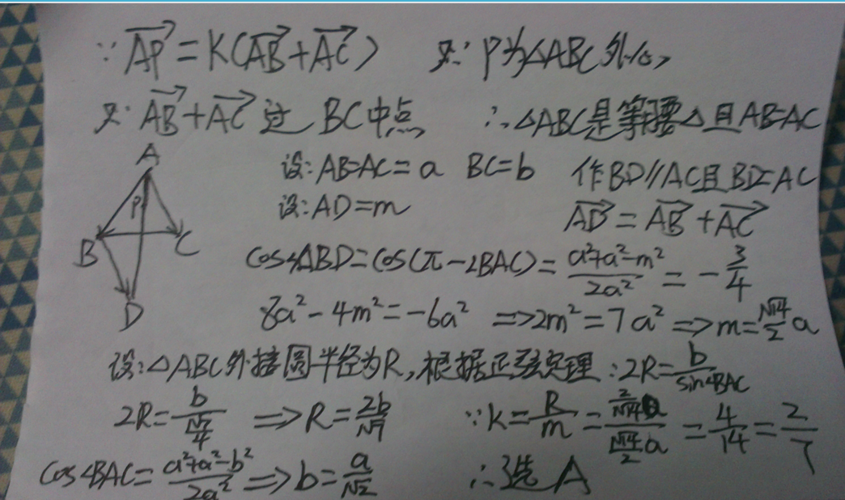 ∵ AP = K(AB + AC) 又∵ P为△ABC外心
又∵ AB + AC 过 BC中点 ∴△ABC是等腰△且AB=AC
A
设:AB=AC=a BC=b 作BD//AC且BD=AC
设:AD=m AD = AB + AC
P
B C
D
cos∠ABD=cos(π-∠BAC)= (a²+a²-m²)/(2a²) = -3/4
8a²-4m²=-6a² ⇒2m²=7a² ⇒m=(√14/2)a
设:△ABC外接圆半径为R,根据正弦定理:2R=b/sin∠BAC
2R=b/(√7/4) ⇒R=2b/√7 ∵K=R/m=(2/√14 a)/(√14/2 a)=4/14=2/7
cos∠BAC=(a²+a²-b²)/(2a²) ⇒b=a/√2 ∴选A